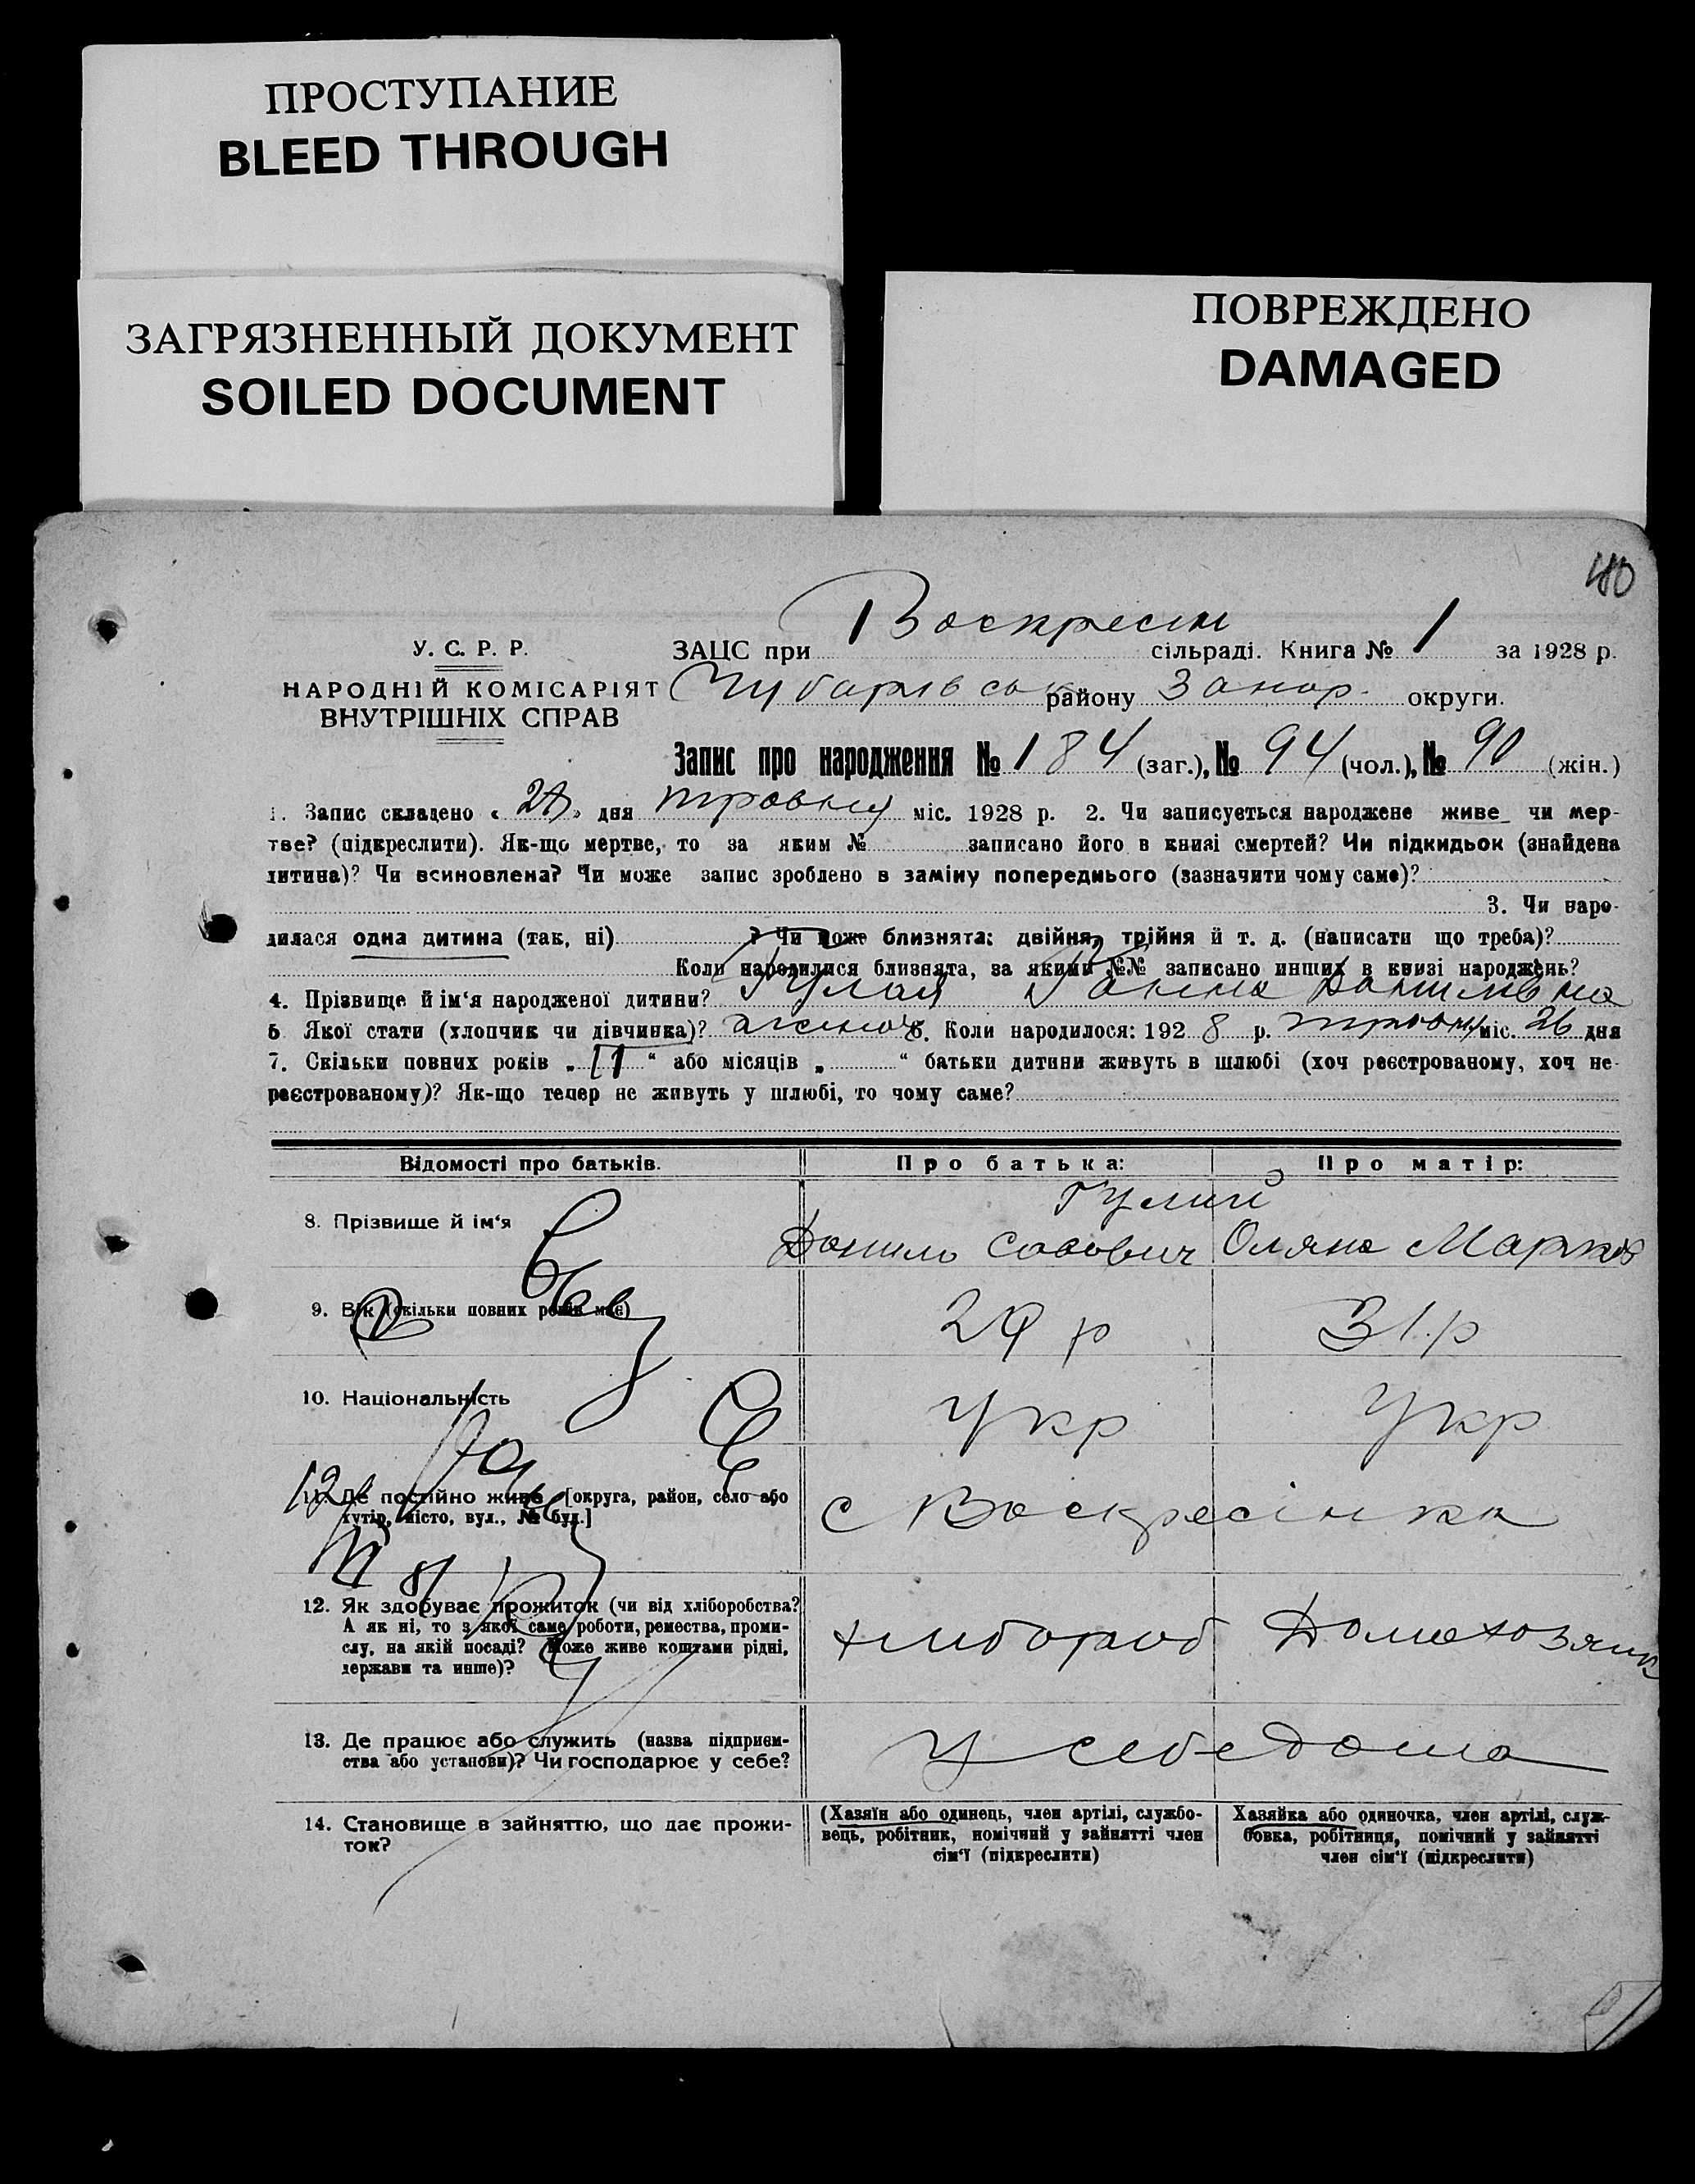 ПРОСТУПАНИЕ
BLEED THROUGH
ЗАГРЯЗНЕННЫЙ ДОКУМЕНТ
SOILED DOCUMENT
ПОВРЕЖДЕНО
DAMAGED
У. С. Р. Р.
НАРОДНІЙ КОМІСАРІЯТ
ВНУТРІШНІХ СПРАВ
ЗАЦС при Воскресен сільраді. Книга № 1 за 1928 р.
Чубарівськ району Запор. округи.
Запис про народження № 184 (заг.), № 94 (чол.), № 90 (жін.)
1. Запис складено « 28 » дня травня міс. 1928 р. 2. Чи записується народжене живе чи мер-
тве? (підкреслити). Як-що мертве, то за яким № записано його в книзі смертей? Чи підкидьок (знайдена
дитина)? Чи всиновлена? Чи може запис зроблено в заміну попереднього (зазначити чому саме)?
3. Чи наро-
дилася одна дитина (так, ні) ? Чи може близнята: двійня, трійня й т. д. (написати що треба)?
Коли народилися близнята, за якими №№ записано инших в книзі народжень?
4. Прізвище й ім‘я народженої дитини? Гулай Ганна Данилівна
5 Якої стати (хлопчик чи дівчинка)? жіноч 6. Коли народилося: 192 8 р. травня міс. 26 дня
7. Скільки повних років „ 11 “ або місяців „ “ батьки дитини живуть в шлюбі (хоч реєстрованому, хоч не-
реєстрованому)? Як-що тепер не живуть у шлюбі, то чому саме?
Відомості про батьків. Про батька: Про матір:
Гулий
8. Прізвище й ім‘я Данило Савович Оляна Марков
9. Вік (скільки повних років має) 29 р 31.р
10. Національність Укр Укр
11. Де постійно живе [округа, район, село або
хутір, місто, вул., № буд.] с Воскресінка
12. Як здобуває прожиток (чи від хліборобства?
А як ні, то з якої саме роботи, ремества, проми-
слу, на якій посаді? Може живе коштами рідні,
держави та инше)? хлибороб Домохозяйк
13. Де працює або служить (назва підприєм-
ства або установи)? Чи господарює у себе? У себе дома
14. Становище в зайняттю, що дає прожи-
ток?
(Хазяїн або одинець, член артілі, службо-
вець, робітник, помічний у зайнятті член
сім‘ї (підкреслити)
Хазяйка або одиночка, член артілі, служ-
бовка, робітниця, помічний у зайнятті
член сім‘ї (підкреслити)